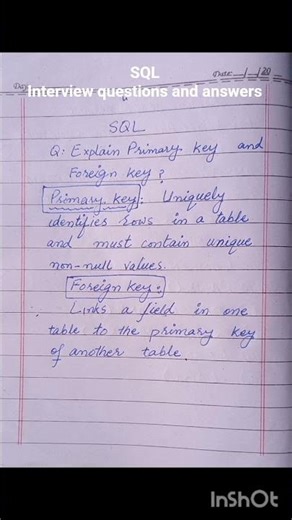 SQL
Interview questions and answers
Day
Date: __/__/20
SQL
Q: Explain Primary key and
Foreign key?
Primary key: Uniquely
identifies rows in a table
and must contain unique
non-null values.
Foreign key:
Links a field in one
table to the primary key
of another table.
InShOt